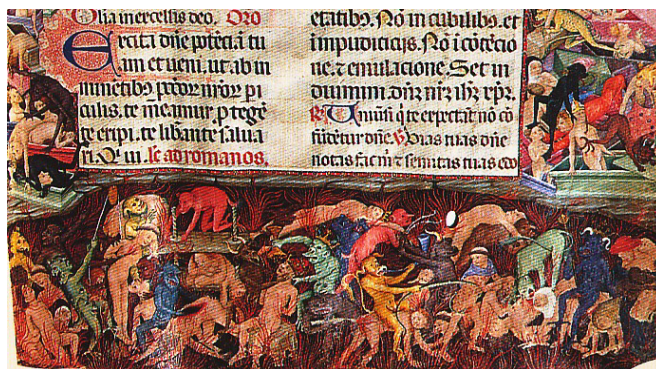 Olia in excelsis deo. Oro
Ercita dñe potēciā tu
am et ueni. ut ab in
minētibꝫ
culis. te mẽamur. ꝓtegẽ
te eripi. te libante salua
ri. Q̃ ui. Ie ad romanos.
etatibꝫ. Nõ in cubilibꝫ. et
impudicicijs. Nõ ĩ cõtẽcio
ne. ⁊ emulacione. Set in
duimini dñz nr̃z ihz xp̃z.
R̃ Uniũsi q̃ te expectãt nõ cõ
fũdẽtur dñe. V̾ Uias tuas dñe
notas fac m̃ ⁊ semitas tuas edo